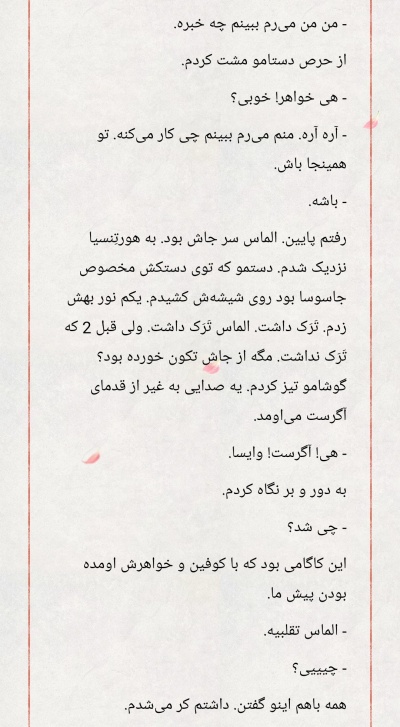 - من من می‌رم ببینم چه خبره.
از حرص دستامو مشت کردم.
- هی خواهر! خوبی؟
- آره آره. منم می‌رم ببینم چی کار می‌کنه. تو
همینجا باش.
- باشه.
رفتم پایین. الماس سر جاش بود. به هورتِنسیا
نزدیک شدم. دستمو که توی دستکش مخصوص
جاسوسا بود روی شیشه‌ش کشیدم. یکم نور بهش
زدم. تَرَک داشت. الماس تَرَک داشت. ولی قبل 2 که
تَرَک نداشت. مگه از جاش تکون خورده بود؟
گوشامو تیز کردم. یه صدایی به غیر از قدمای
آگرست می‌اومد.
- هی! آگرست! وایسا.
به دور و بر نگاه کردم.
- چی شد؟
این کاگامی بود که با کوفین و خواهرش اومده
بودن پیش ما.
- الماس تقلبیه.
- چیییی؟
همه باهم اینو گفتن. داشتم کر می‌شدم.